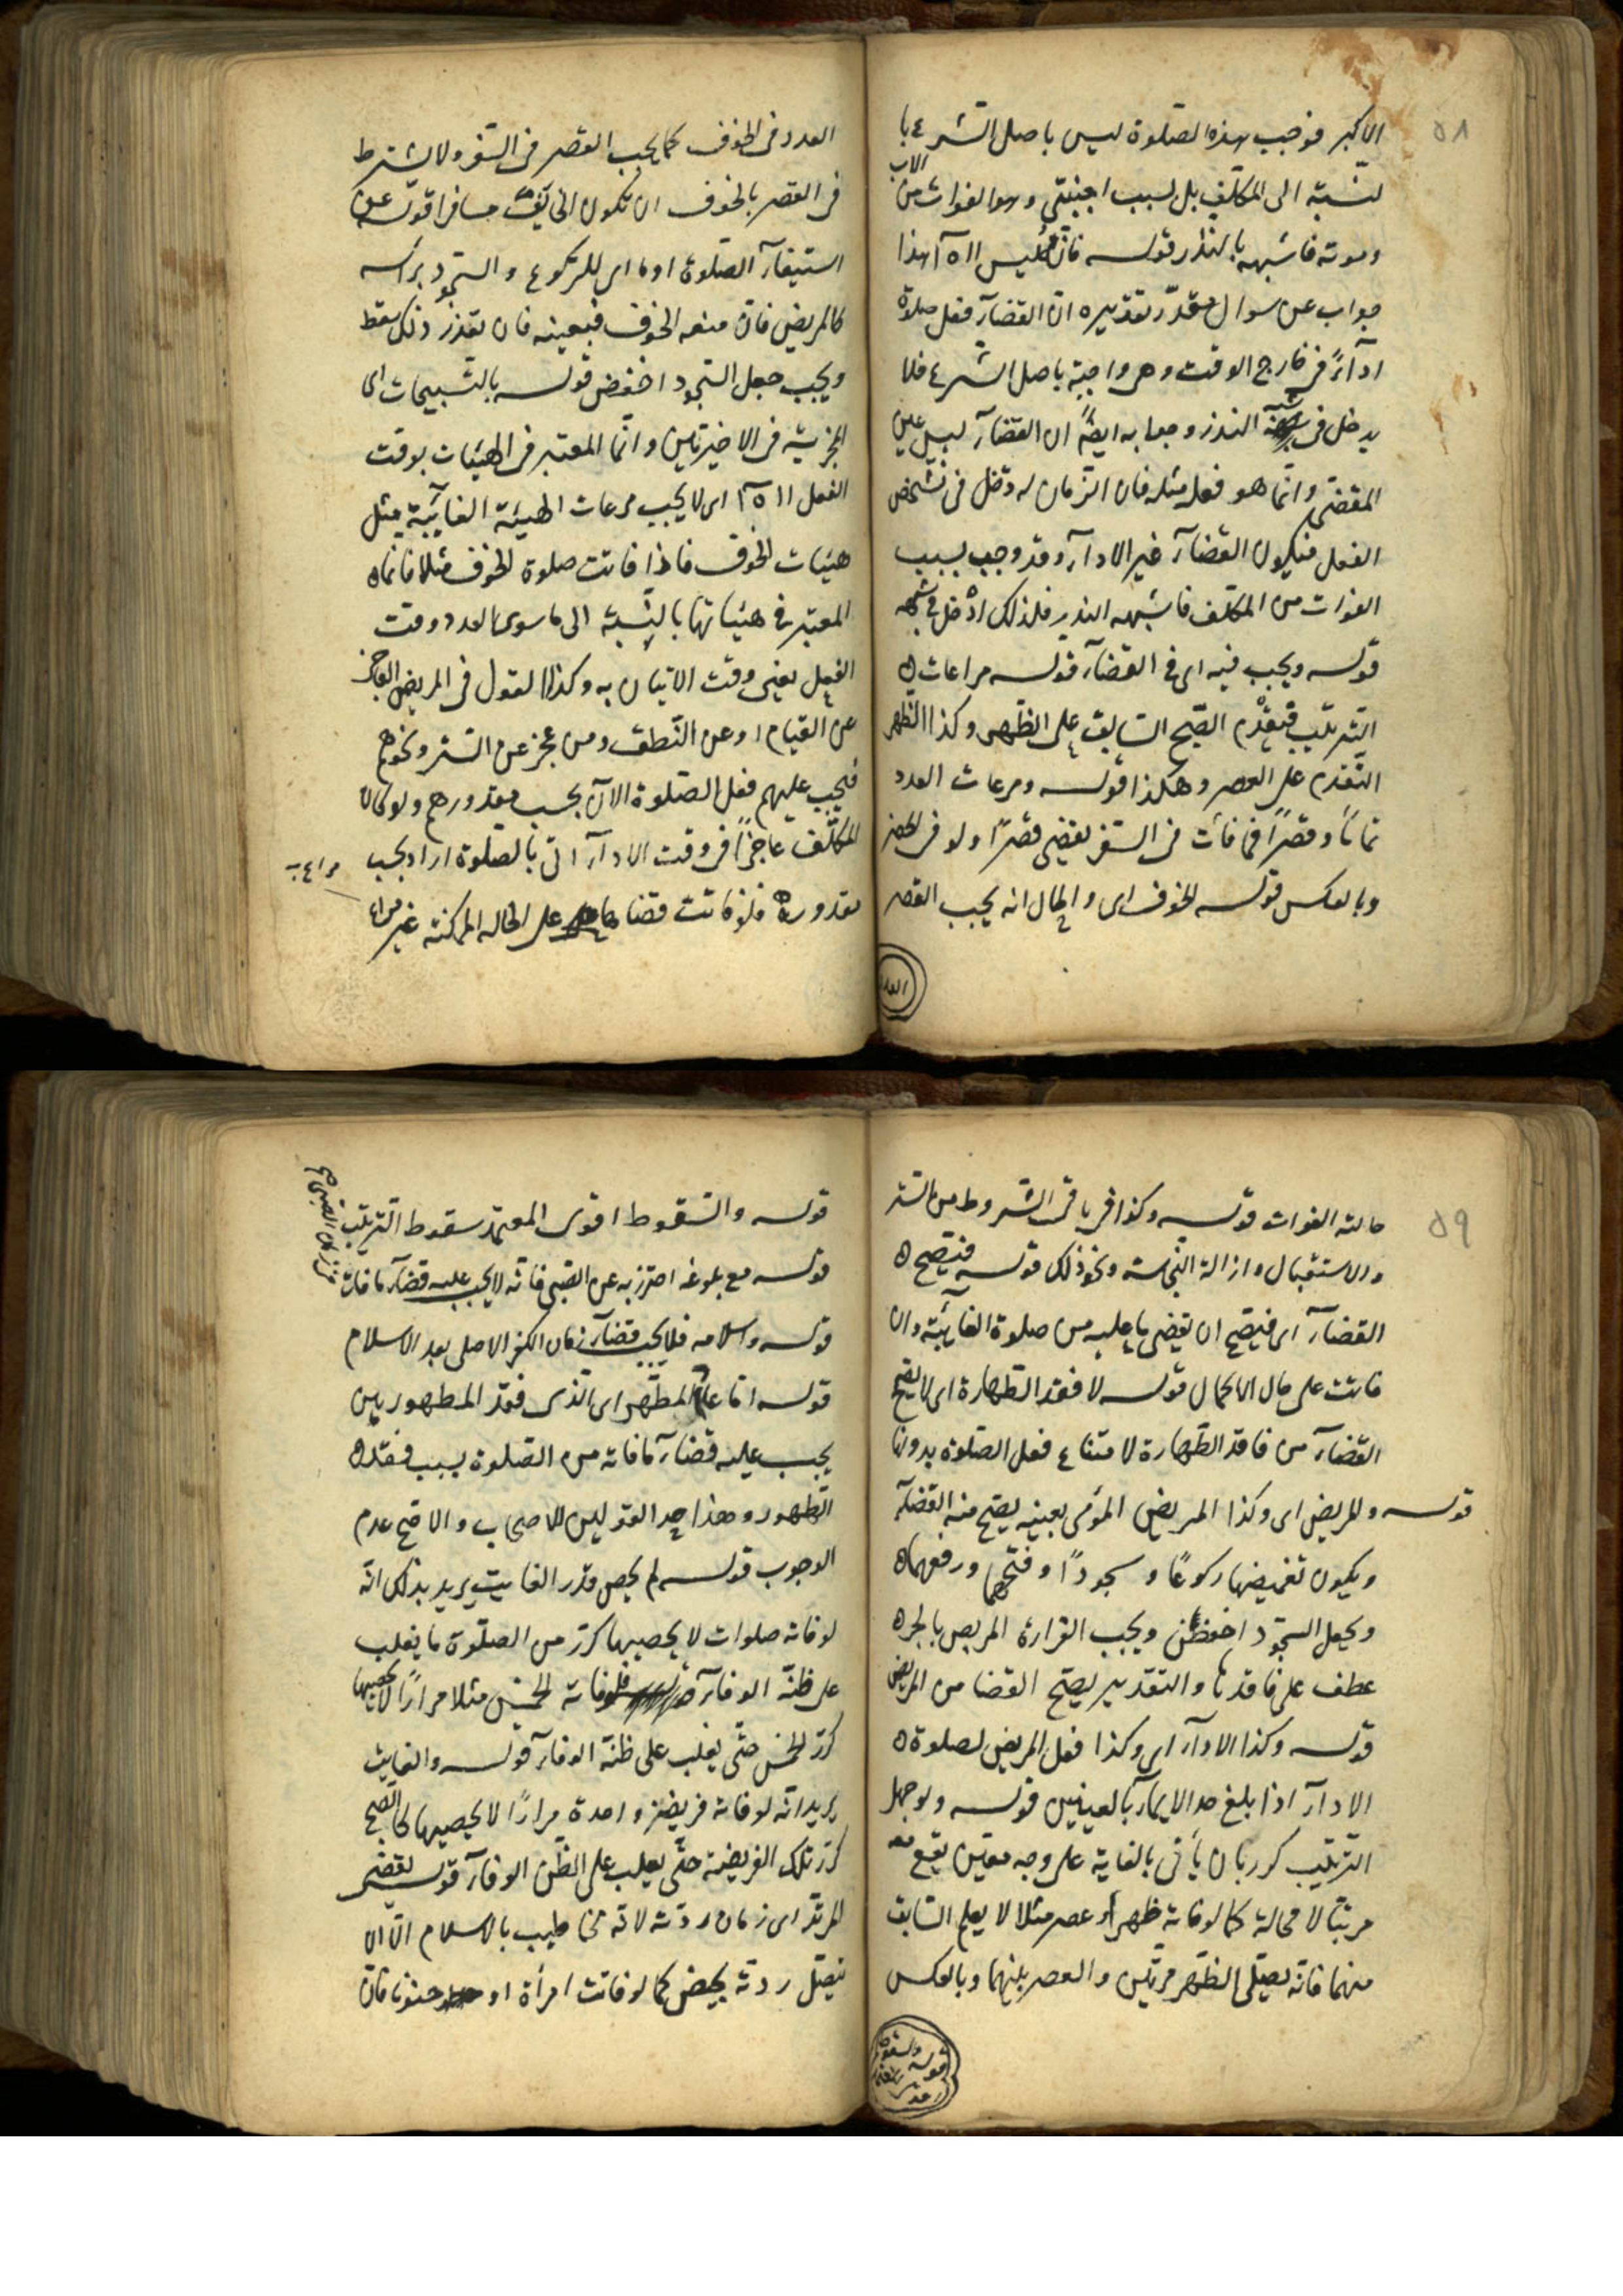 ٥٨
الاكبر فوجب هذه الصلوة ليس باصل الشرع با
لنسبة الى المكلف بل لسبب اجنبي وهو الفوات من
الاب
وموته فاشبهه بالنذر قوله فان قيل ليس اه هذا
جواب عن سوال مقدّر تقديره ان القضآء فعل صلوة
ادآءً في خارج الوقت وهي واجبة باصل الشرع فلا
يدخل في النذر وجوابه ايضًا ان القضآء ليس عين
المقضي وانّما هو فعل مثله فان الزمان له دخل في تشخص
الفعل فيكون القضآء غير الادآء وقد وجب بسبب
الفوات من المكلف فاشبهه النذر فلذلك ادخل في شبهه
قوله ويجب فيه اى في القضآء قوله مراعات
الترتيب فيقدم الصبح السابق على الظهر وكذا الظهر
التقدم على العصر وهكذا قوله ومرعات العدد
تمامًا وقصرًا فما فات في السفر يقضى قصرًا ولو في الحضر
وبالعكس قوله الخوف اى والحال انه يجب القصر
العدد
العدد في الخوف كما يجب القصر في السفر ولا يشترط
في القصر بالخوف ان تكون الخايف مسافرا قوله عن
استيفآء الصلوة اوما اى للركوع والسجود براسه
كالمريض فان منعه الخوف فبعينه فان تعذر ذلك سقط
ويجب جعل السجود اخفض قوله بالتسبيحات اى
المجزية في الاخيرتين وانّما المعتبر في الهيئات بوقت
الفعل اه اى لا يجب مرعات الهيئة الفآئتة مثل
هيئات الخوف فاذا فاتت صلوة الخوف مثلا فانما
المعتبر في هيئاتها بالنسبة الى ما سوى العدد وقت
الفعل يعني وقت الاتيان به وكذا القول في المريض العاجز
عن القيام او عن النطق ومن عجز عن الستر ونحوهم
فيجب عليهم فعل الصلوة الان بحسب مقدورهم ولو كان
المكلف عاجزًا في وقت الادآء اتى بالصلوة اداء بحسب
مقدوره فلو فاتت قضاها على الحاله الممكنة غير مراع
مراع
٥٩
حالته الفوات قوله وكذا في باقي الشروط من الستر
والاستقبال وازالة النجاسة ونحو ذلك قوله فيصح
القضآء اى فيصح ان يقضى ما عليه من صلوة الفآئتة وان
فاتت على حال الاكمال قوله لا فقد الطهارة اى لا يصح
القضآء من فاقد الطهارة لامتناع فعل الصلوة بدونها
قوله والمريض اى وكذا المريض المؤمى بعينه يصح منه القضآء
ويكون تغميضها ركوعًا وسجودًا وفتحهما رفعهما
ويجعل السجود اخفض ويجب القرارة المريض بالجر
عطف على فاقدها والتقدير يصح القضا من المريض
قوله وكذا الادآء اى وكذا فعل المريض لصلوة
الادآء اذا بلغ حد الايمآء بالعينين قوله ولو جهل
الترتيب كرر بان يأتى بالفاية على وجه معين يقع معه
مرتبًا لا محالة كما لو فاته ظهر او عصر مثلا لا يعلم السابق
منهما فانه يصلى الظهر مرتين والعصر بينهما وبالعكس
قوله والسقوط
قوله والسقوط اقوى المعتمد سقوط الترتيب
قوله مع بلوغه احترز به عن الصبى فانه لا يجب عليه قضآء ما فات
في زمان الصبى صح
قوله واسلامه فلا يجب قضآء زمان الكفر الاصلى بعد الاسلام
قوله اما عادم المطهر اى الذى فقد المطهورين
يجب عليه قضآء ما فاته من الصلوة بسبب فقد
الطهور وهذا احد القولين للاصحاب والاصح عدم
الوجوب قوله لم يحص قدر الفايت يريد بذلك انه
لو فاته صلوات لا يحصيها كرّر من الصلوة ما يغلب
على ظنه الوفآء فلو فاته الخمس مثلا مرارًا لا يحصيها
كرّر الخمس حتى يغلب على ظنه الوفآء قوله والفايت
يريد انه لو فاته فريضة واحدة مرارًا لا يحصيها كالصبح
كرّر تلك الفريضة حتى يغلب على الظن الوفآء قوله يقضى
المرتد اى زمان ردته لانه مخاطب بالاسلام الا ان
تتصل ردته بحيض كما لو فاتت امرأة او جنونا فان